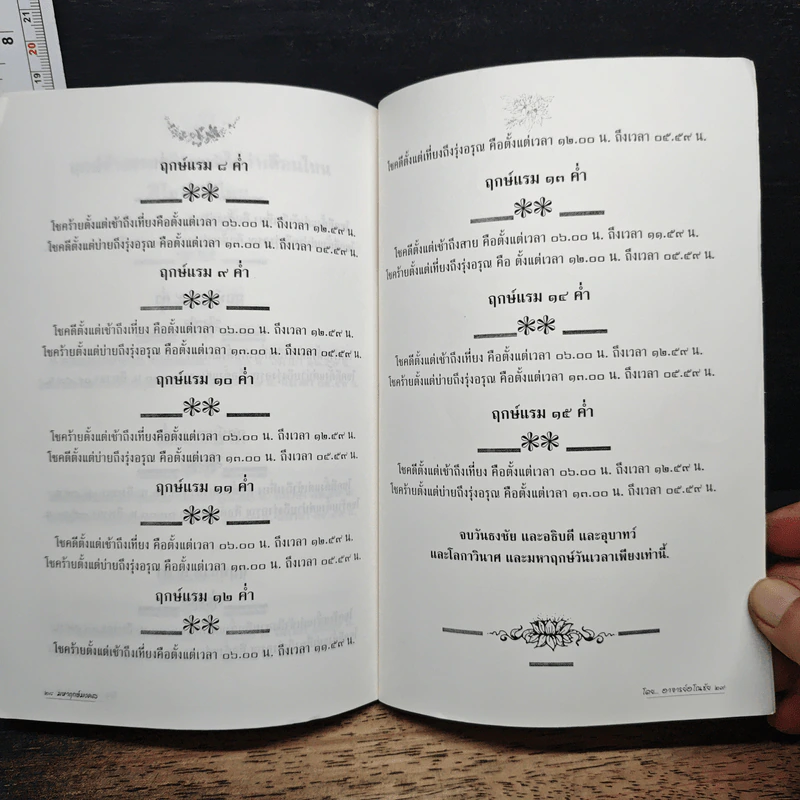 ฤกษ์แรม ๘ ค่ำ
โชคร้ายตั้งแต่เช้าถึงเที่ยงคือตั้งแต่เวลา ๐๖.๐๐ น. ถึงเวลา ๑๒.๕๙ น.
โชคดีตั้งแต่บ่ายถึงรุ่งอรุณ คือตั้งแต่เวลา ๑๓.๐๐ น. ถึงเวลา ๐๕.๕๙ น.
ฤกษ์แรม ๙ ค่ำ
โชคดีตั้งแต่เช้าถึงเที่ยง คือตั้งแต่เวลา ๐๖.๐๐ น. ถึงเวลา ๑๒.๕๙ น.
โชคร้ายตั้งแต่บ่ายถึงรุ่งอรุณ คือตั้งแต่เวลา ๑๓.๐๐ น. ถึงเวลา ๐๕.๕๙ น.
ฤกษ์แรม ๑๐ ค่ำ
โชคร้ายตั้งแต่เช้าถึงเที่ยงคือตั้งแต่เวลา ๐๖.๐๐ น. ถึงเวลา ๑๒.๕๙ น.
โชคดีตั้งแต่บ่ายถึงรุ่งอรุณ คือตั้งแต่เวลา ๑๓.๐๐ น. ถึงเวลา ๐๕.๕๙ น.
ฤกษ์แรม ๑๑ ค่ำ
โชคดีตั้งแต่เช้าถึงเที่ยง คือตั้งแต่เวลา ๐๖.๐๐ น. ถึงเวลา ๑๒.๕๙ น.
โชคร้ายตั้งแต่บ่ายถึงรุ่งอรุณ คือตั้งแต่เวลา ๑๓.๐๐ น. ถึงเวลา ๐๕.๕๙ น.
ฤกษ์แรม ๑๒ ค่ำ
โชคร้ายตั้งแต่เช้าถึงเที่ยงคือตั้งแต่เวลา ๐๖.๐๐ น. ถึงเวลา ๑๑.๕๙ น.
โชคดีตั้งแต่เที่ยงถึงรุ่งอรุณ คือตั้งแต่เวลา ๑๒.๐๐ น. ถึงเวลา ๐๕.๕๙ น.
ฤกษ์แรม ๑๓ ค่ำ
โชคดีตั้งแต่เช้าถึงสาย คือตั้งแต่เวลา ๐๖.๐๐ น. ถึงเวลา ๑๑.๕๙ น.
โชคร้ายตั้งแต่เที่ยงถึงรุ่งอรุณ คือ ตั้งแต่เวลา ๑๒.๐๐ น. ถึงเวลา ๐๕.๕๙ น.
ฤกษ์แรม ๑๔ ค่ำ
โชคดีตั้งแต่เช้าถึงเที่ยง คือตั้งแต่เวลา ๐๖.๐๐ น. ถึงเวลา ๑๒.๕๙ น.
โชคร้ายตั้งแต่บ่ายถึงรุ่งอรุณ คือตั้งแต่เวลา ๑๓.๐๐ น. ถึงเวลา ๐๕.๕๙ น.
ฤกษ์แรม ๑๕ ค่ำ
โชคดีตั้งแต่เช้าถึงเที่ยง คือตั้งแต่เวลา ๐๖.๐๐ น. ถึงเวลา ๑๒.๕๙ น.
โชคร้ายตั้งแต่บ่ายถึงรุ่งอรุณ คือตั้งแต่เวลา ๑๓.๐๐ น. ถึงเวลา ๐๕.๕๙ น.
จบวันธงชัย และอธิบดี และอุบาทว์
และโลกาวินาศ และมหาฤกษ์วันเวลาเพียงเท่านี้.
โดย.. อาจารย์
8
19 20 21